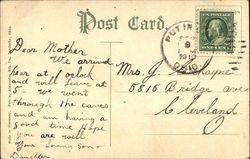 Post Card.
Dear Mother
We arrived
hear at 1 oclock
and will leave at
5. we went
through the caves
and am having a
good time Hope
you are well
Your loving son
PUT IN BAY
SEP
9
OHIO
Mrs. J. Chayne
5515 Bridge ave
Cleveland